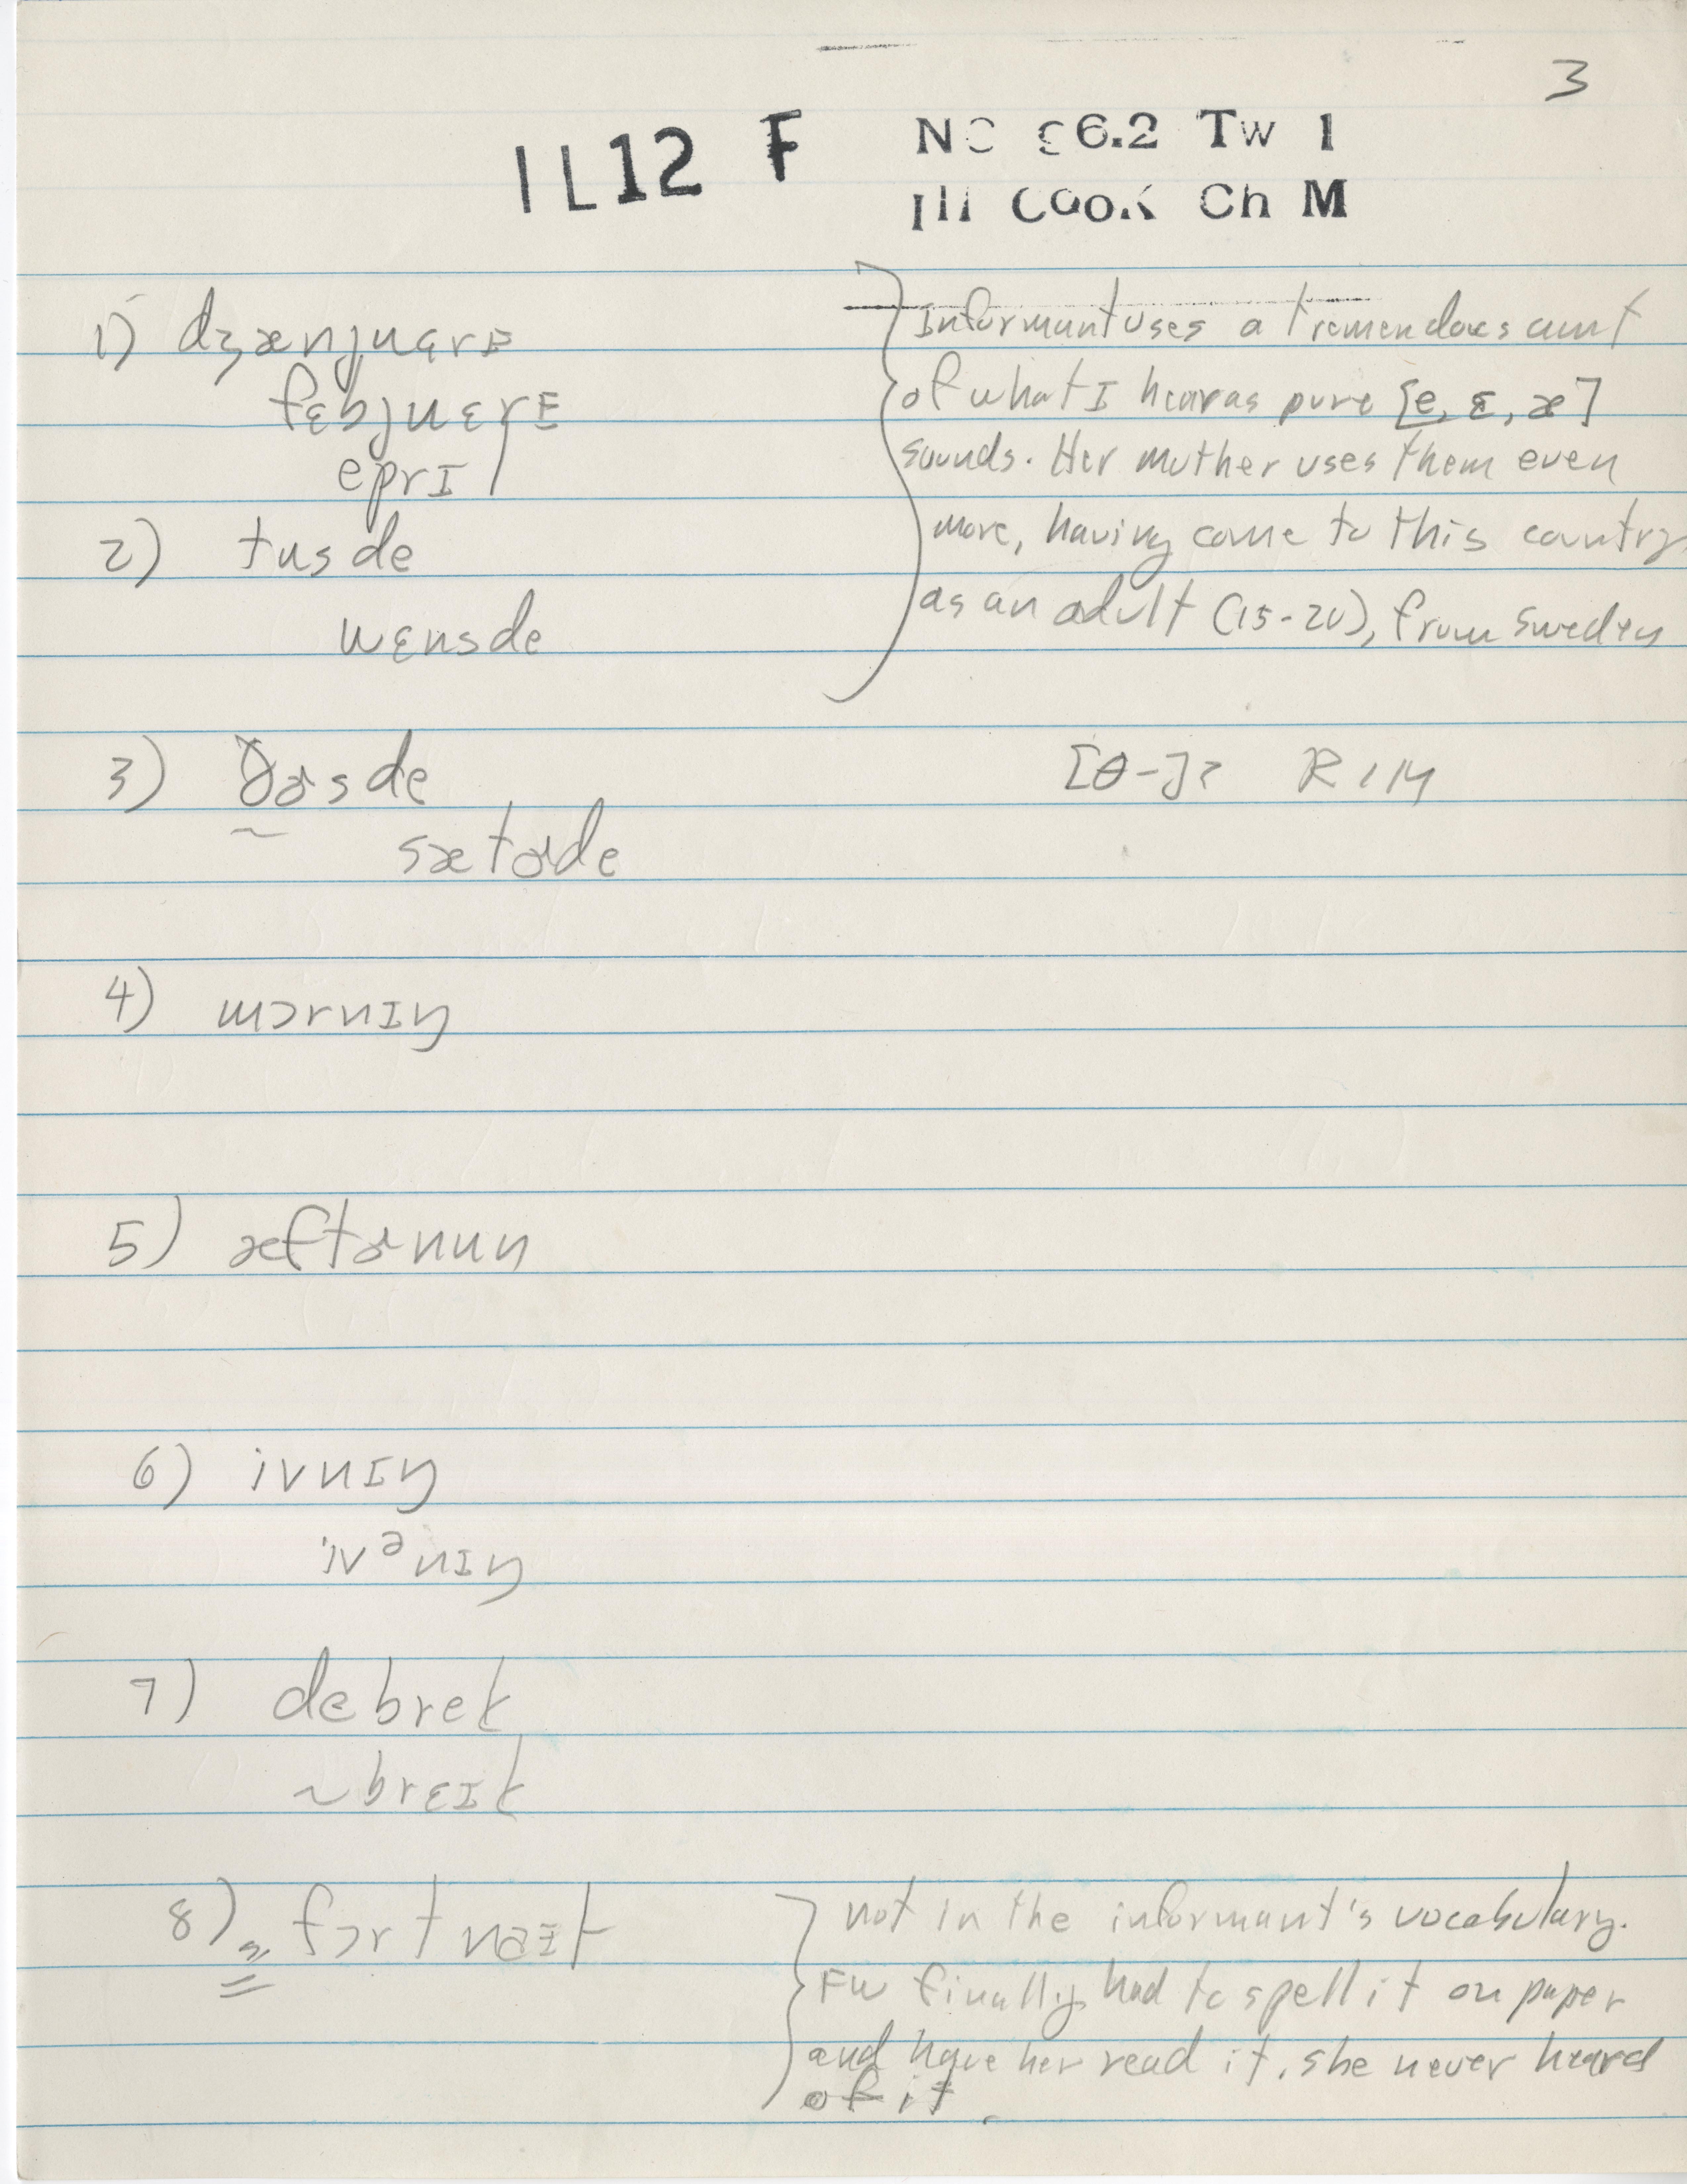 3
IL12 F NC 86.2 Tw 1
Ill Cook Ch M
1) dʒænjuɛrɪ
fɛbjuɛrɪ
eprɪl
2) tusde
wɛnsde
3) ðɚsde
~ sætɚde
4) mɔrnɪŋ
5) æftɚnun
6) ivnɪŋ
ivᵊnɪŋ
7) debrek
~brɛɪk
8) fɔrtnaɪt
Informant uses a tremendous amt
of what I hear as pure [e, ɛ, æ]
sounds. Her mother uses them even
more, having come to this country
as an adult (15-20), from Sweden
[θ-]? R I M
not in the informant's vocabulary.
FW finally had to spell it on paper
and have her read it. She never heard
of it.